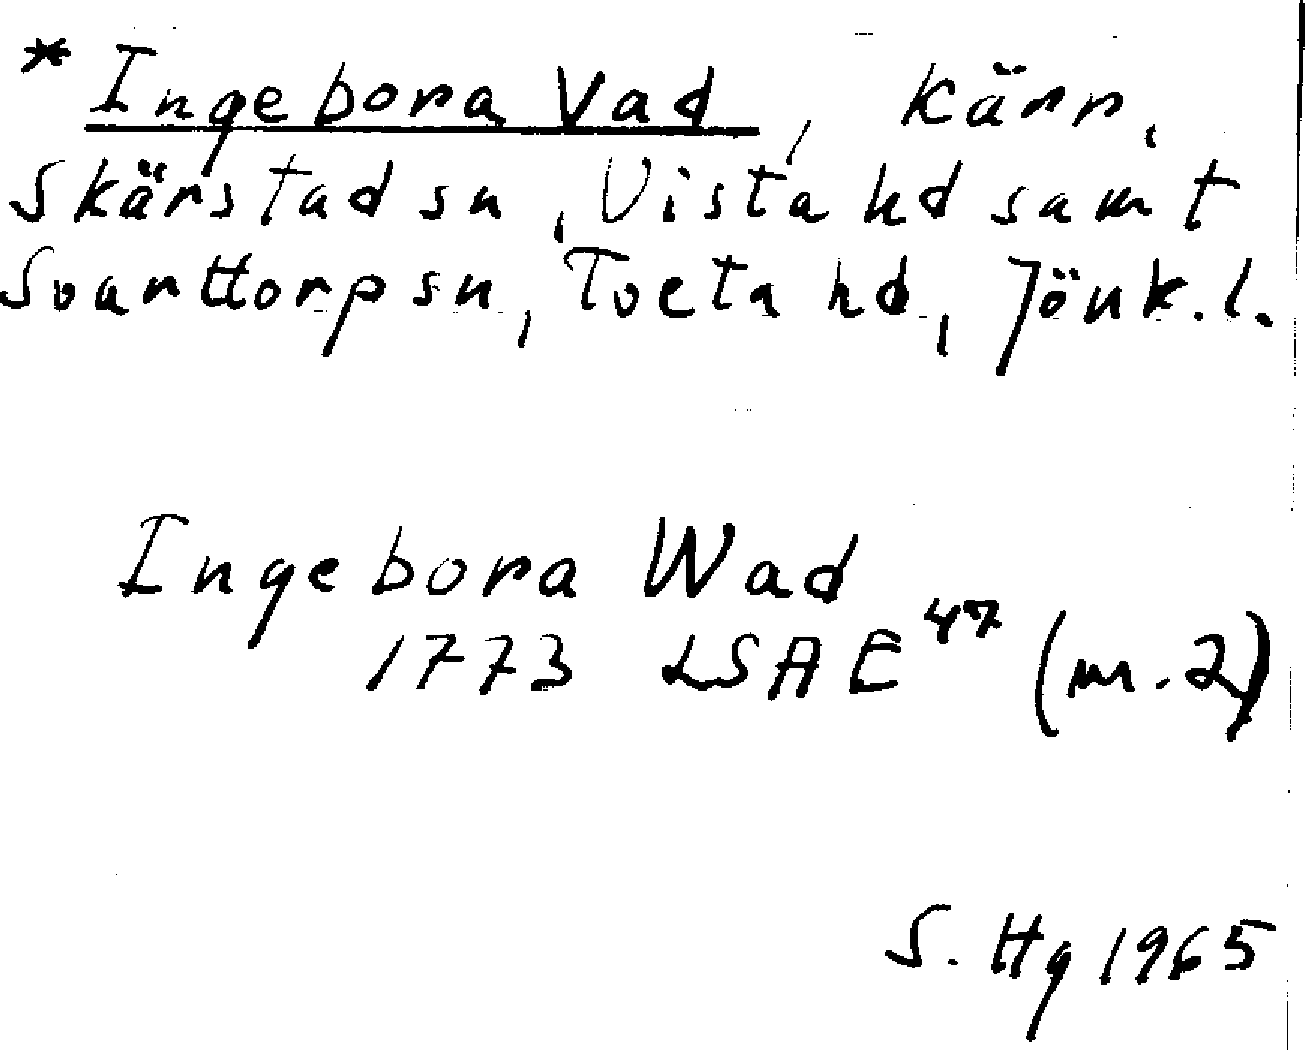 * Ingebora Vad, kärr,
Skärstad sn, Vista hd samt
Svarttorp sn, Tveta hd, Jönk.l.
Ingebora Wad
1773 LSA E 47 (nr. 2)
S. Hg 1965